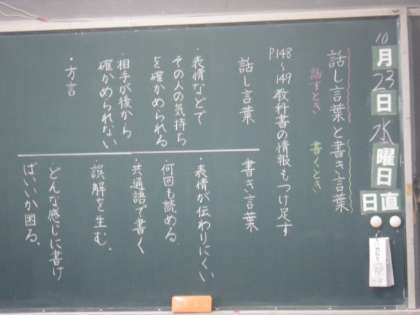 10月23日水曜日
日直
話し言葉と書き言葉
話すとき 書くとき
P148〜149 教科書の情報もつけ足す
話し言葉
・表情などで
その人の気持ち
を確かめられる
・相手が後から
確かめられない
・方言
書き言葉
・表情が伝わりにくい
・何回も読める。
・共通語で書く
・誤解を生む。
・どんな感じに書け
ばいいか困る。